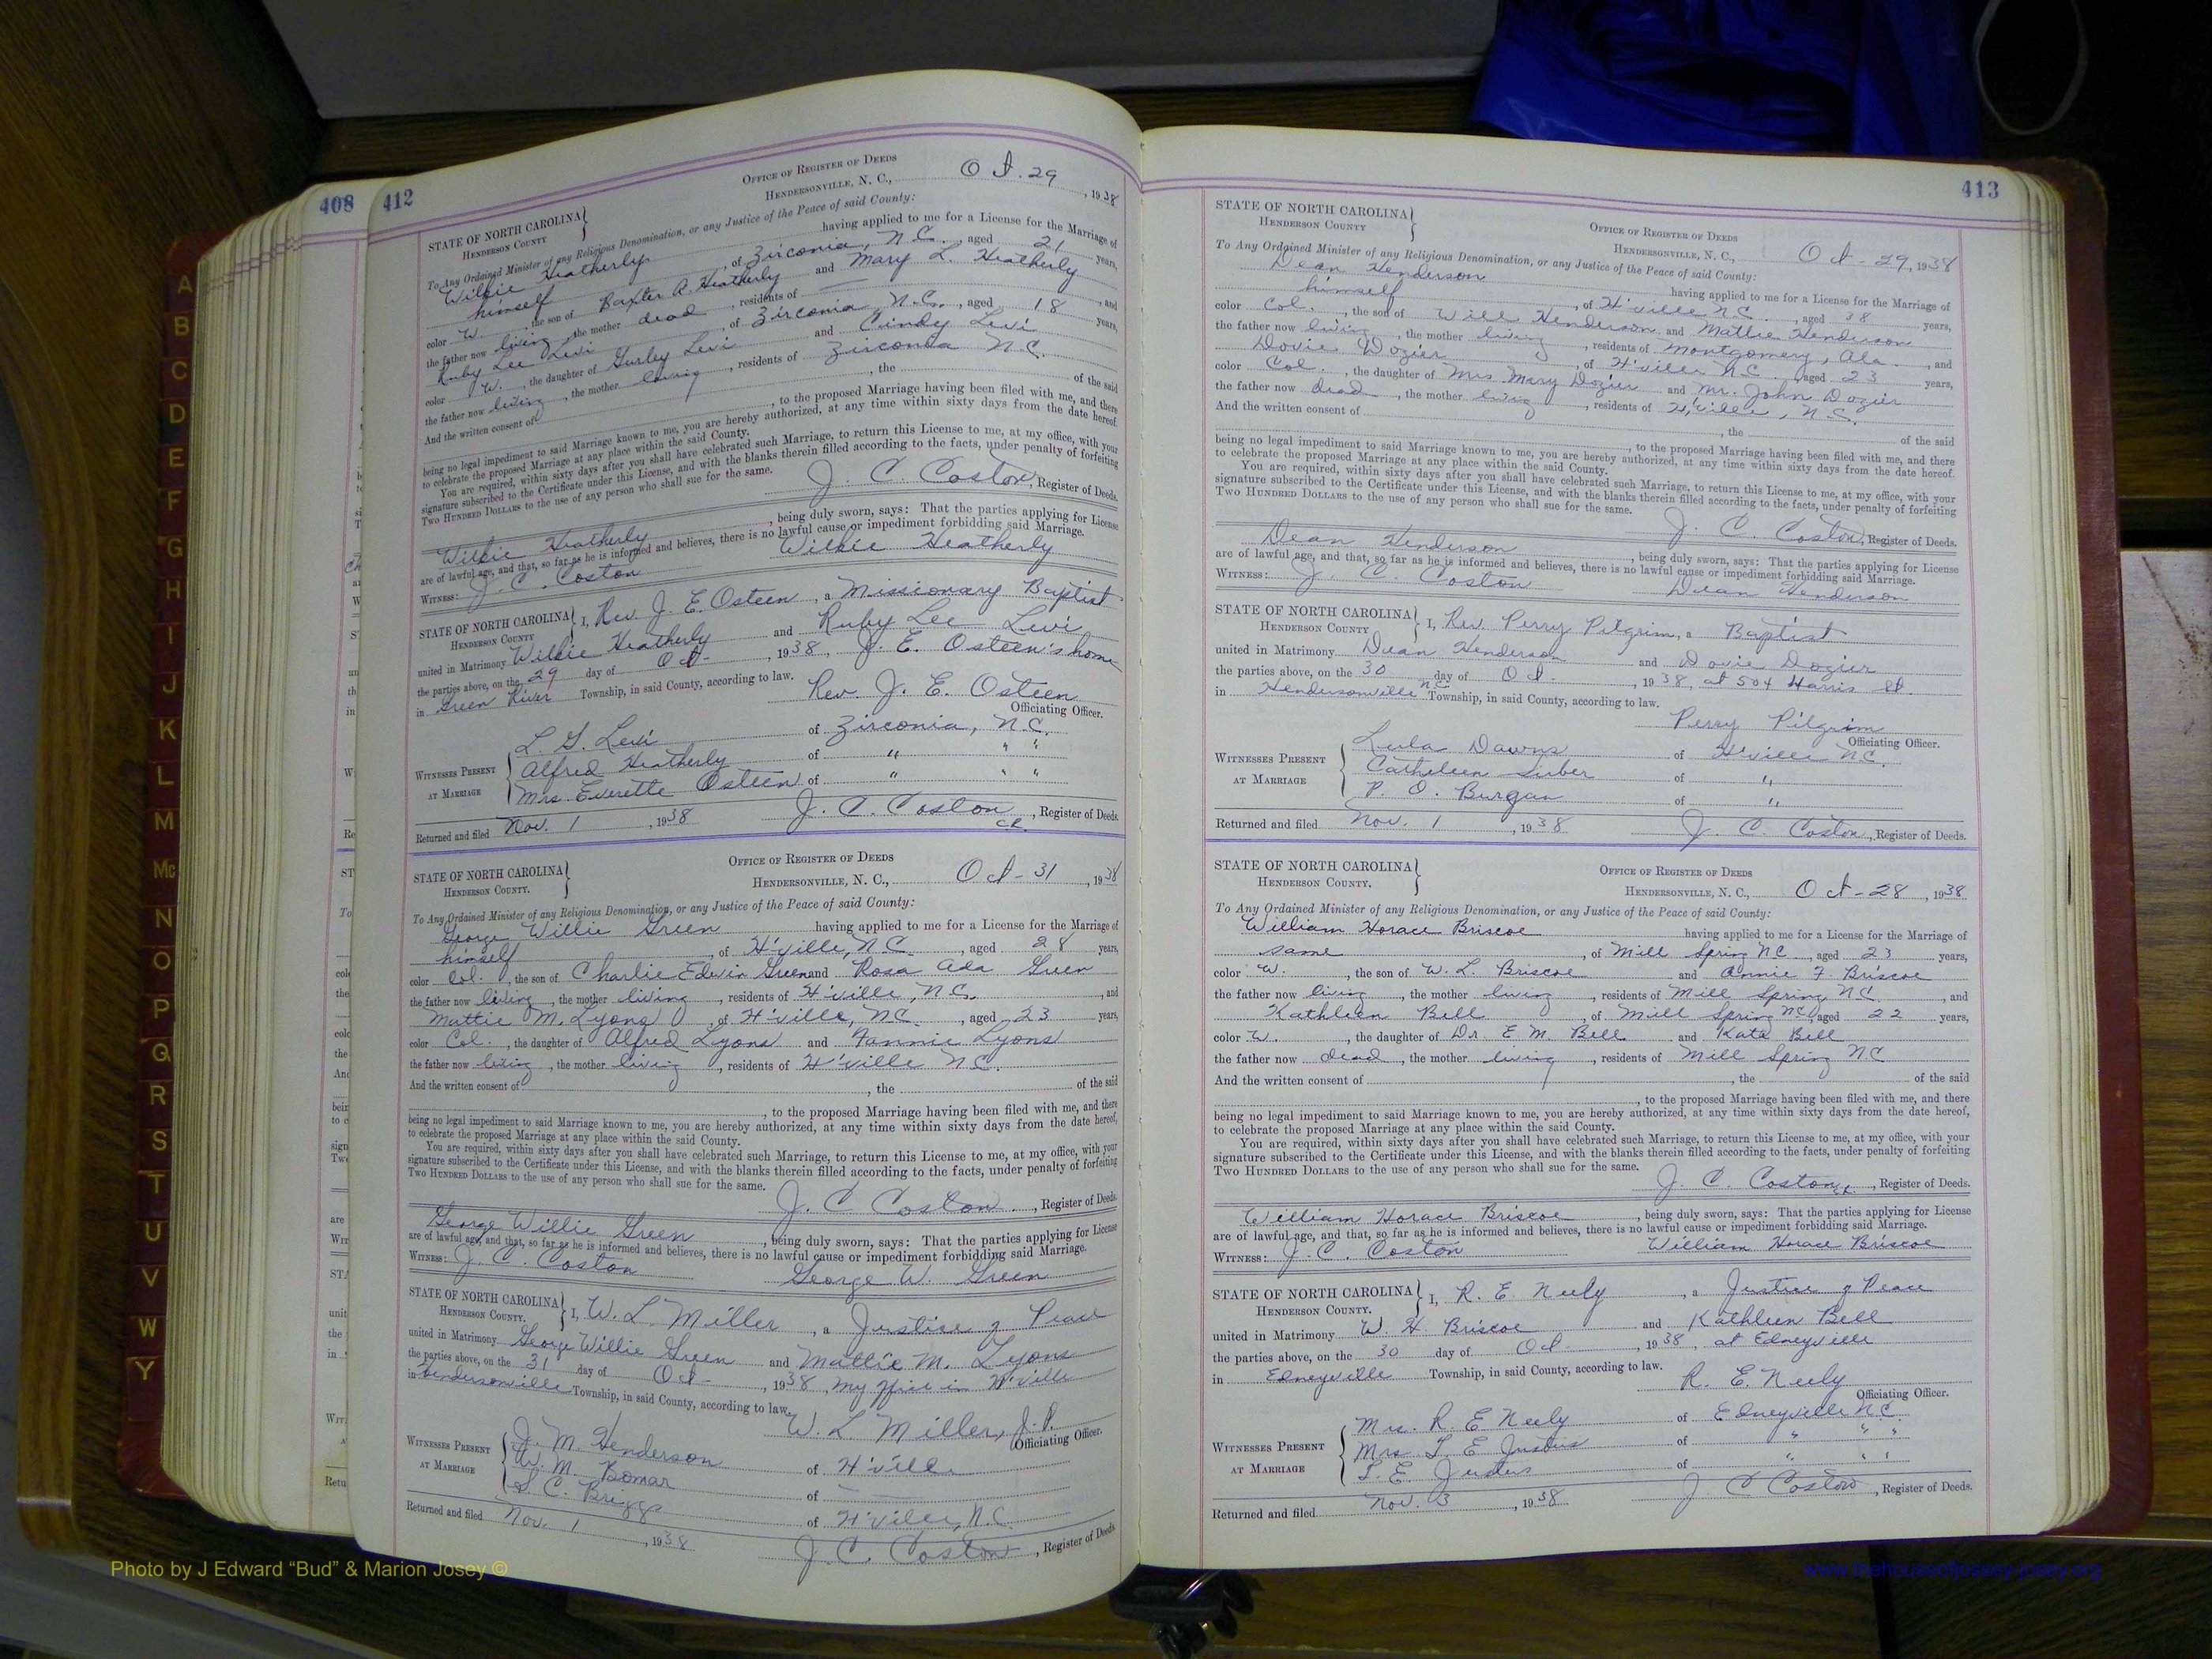 408
412
Office of Register of Deeds
Hendersonville, N. C., Oct. 29, 1938
STATE OF NORTH CAROLINA
Henderson County
To Any Ordained Minister of any Religious Denomination, or any Justice of the Peace of said County:
Wilkie Heatherly having applied to me for a License for the Marriage of
himself, of Zirconia, N.C., aged 21 years,
color W., the son of Baxter A. Heatherly and Mary L. Heatherly
the father now living, the mother dead, residents of , and
Ruby Lee Levi, of Zirconia N.C., aged 18 years,
color W., the daughter of Gurley Levi and Cindy Levi
the father now living, the mother living, residents of Zirconia N.C.
And the written consent of , the of the said
, to the proposed Marriage having been filed with me, and there
being no legal impediment to said Marriage known to me, you are hereby authorized, at any time within sixty days from the date hereof,
to celebrate the proposed Marriage at any place within the said County.
You are required, within sixty days after you shall have celebrated such Marriage, to return this License to me, at my office, with your
signature subscribed to the Certificate under this License, and with the blanks therein filled according to the facts, under penalty of forfeiting
Two Hundred Dollars to the use of any person who shall sue for the same.
J. C. Coston, Register of Deeds.
Wilkie Heatherly, being duly sworn, says: That the parties applying for License
are of lawful age, and that, so far as he is informed and believes, there is no lawful cause or impediment forbidding said Marriage.
Witness: J. C. Coston Wilkie Heatherly
STATE OF NORTH CAROLINA
Henderson County
I, Rev. J. E. Osteen, a Missionary Baptist
united in Matrimony Wilkie Heatherly and Ruby Lee Levi
the parties above, on the 29 day of Oct., 1938, J. E. Osteen's home
in Green River Township, in said County, according to law.
Rev. J. E. Osteen
Officiating Officer.
Witnesses Present at Marriage
L. G. Levi of Zirconia, N.C.
Alfred Heatherly of " " "
Mrs. Everette Osteen of " " "
Returned and filed Nov. 1, 1938 J. C. Coston, Register of Deeds.
STATE OF NORTH CAROLINA
Henderson County.
Office of Register of Deeds
Hendersonville, N. C., Oct-31, 1938
To Any Ordained Minister of any Religious Denomination, or any Justice of the Peace of said County:
George Willie Green having applied to me for a License for the Marriage of
himself, of H'ville, N.C., aged 28 years,
color Col., the son of Charlie Edwin Green and Rosa Ada Green
the father now living, the mother living, residents of H'ville, N.C., and
Mattie M. Lyons, of H'ville, N.C., aged 23 years,
color Col., the daughter of Alfred Lyons and Fannie Lyons
the father now living, the mother living, residents of H'ville N.C.
And the written consent of , the of the said
, to the proposed Marriage having been filed with me, and there
being no legal impediment to said Marriage known to me, you are hereby authorized, at any time within sixty days from the date hereof,
to celebrate the proposed Marriage at any place within the said County.
You are required, within sixty days after you shall have celebrated such Marriage, to return this License to me, at my office, with your
signature subscribed to the Certificate under this License, and with the blanks therein filled according to the facts, under penalty of forfeiting
Two Hundred Dollars to the use of any person who shall sue for the same.
J. C. Coston, Register of Deeds.
George Willie Green, being duly sworn, says: That the parties applying for License
are of lawful age, and that, so far as he is informed and believes, there is no lawful cause or impediment forbidding said Marriage.
Witness: J. C. Coston George W. Green
STATE OF NORTH CAROLINA
Henderson County.
I, W. L. Miller, a Justice of Peace
united in Matrimony George Willie Green and Mattie M. Lyons
the parties above, on the 31 day of Oct-, 1938, my office in H'ville
in Hendersonville Township, in said County, according to law.
W. L. Miller, J. P.
Officiating Officer.
Witnesses Present at Marriage
J. M. Henderson of H'ville
W. M. Bomar of
S. C. Briggs of H'ville, N.C.
Returned and filed Nov. 1, 1938 J. C. Coston, Register of Deeds
413
STATE OF NORTH CAROLINA
Henderson County
Office of Register of Deeds
Hendersonville, N. C., Oct-29, 1938
To Any Ordained Minister of any Religious Denomination, or any Justice of the Peace of said County:
Dean Henderson having applied to me for a License for the Marriage of
himself, of H'ville N.C., aged 38 years,
color Col., the son of Will Henderson and Mattie Henderson
the father now living, the mother living, residents of Montgomery, Ala., and
Dovie Dozier, of H'ville N.C., aged 23 years,
color Col., the daughter of Mrs Mary Dozier and Mr. John Dozier
the father now dead, the mother living, residents of H'ville, N.C.
And the written consent of , the of the said
, to the proposed Marriage having been filed with me, and there
being no legal impediment to said Marriage known to me, you are hereby authorized, at any time within sixty days from the date hereof.
to celebrate the proposed Marriage at any place within the said County.
You are required, within sixty days after you shall have celebrated such Marriage, to return this License to me, at my office, with your
signature subscribed to the Certificate under this License, and with the blanks therein filled according to the facts, under penalty of forfeiting
Two Hundred Dollars to the use of any person who shall sue for the same.
J. C. Coston, Register of Deeds.
Dean Henderson, being duly sworn, says: That the parties applying for License
are of lawful age, and that, so far as he is informed and believes, there is no lawful cause or impediment forbidding said Marriage.
Witness: J. C. Coston Dean Henderson
STATE OF NORTH CAROLINA
Henderson County
I, Rev. Perry Pilgrim, a Baptist
united in Matrimony Dean Henderson and Dovie Dozier
the parties above, on the 30 day of Oct., 1938, at 504 Harris St.
in Hendersonville N.C. Township, in said County, according to law.
Perry Pilgrim
Officiating Officer.
Witnesses Present at Marriage
Lula Dawns of H'ville N.C.
Catheleen Suber of "
P. O. Burgan of "
Returned and filed Nov. 1, 1938 J. C. Coston, Register of Deeds.
STATE OF NORTH CAROLINA
Henderson County.
Office of Register of Deeds
Hendersonville, N. C., Oct-28, 1938
To Any Ordained Minister of any Religious Denomination, or any Justice of the Peace of said County:
William Horace Briscoe having applied to me for a License for the Marriage of
same, of Mill Spring NC, aged 23 years,
color W., the son of W. L. Briscoe and Annie F. Briscoe
the father now living, the mother living, residents of Mill Spring, N.C., and
Kathleen Bell, of Mill Spring NC, aged 22 years,
color W., the daughter of Dr. E M. Bell and Kate Bell
the father now dead, the mother living, residents of Mill Spring N.C
And the written consent of , the of the said
, to the proposed Marriage having been filed with me, and there
being no legal impediment to said Marriage known to me, you are hereby authorized, at any time within sixty days from the date hereof,
to celebrate the proposed Marriage at any place within the said County.
You are required, within sixty days after you shall have celebrated such Marriage, to return this License to me, at my office, with your
signature subscribed to the Certificate under this License, and with the blanks therein filled according to the facts, under penalty of forfeiting
Two Hundred Dollars to the use of any person who shall sue for the same.
J. C. Coston, Register of Deeds.
William Horace Briscoe, being duly sworn, says: That the parties applying for License
are of lawful age, and that, so far as he is informed and believes, there is no lawful cause or impediment forbidding said Marriage.
Witness: J. C. Coston William Horace Briscoe
STATE OF NORTH CAROLINA
Henderson County.
I, R. E. Neely, a Justice of Peace
united in Matrimony W. H. Briscoe and Kathleen Bell
the parties above, on the 30 day of Oct., 1938, at Edneyville
in Edneyville Township, in said County, according to law.
R. E. Neely
Officiating Officer.
Witnesses Present at Marriage
Mrs. R. E. Neely of Edneyville N.C.
Mrs. L. E. Justus of " " "
L. E. Justus of " " "
Returned and filed Nov. 3, 1938 J. C. Coston, Register of Deeds.
A
B
C
D
E
F
G
H
I
J
K
L
M
Mc
N
O
P
Q
R
S
T
U
V
W
Y
Photo by J Edward “Bud” & Marion Josey ©
www.thehouseofjossey-josey.org